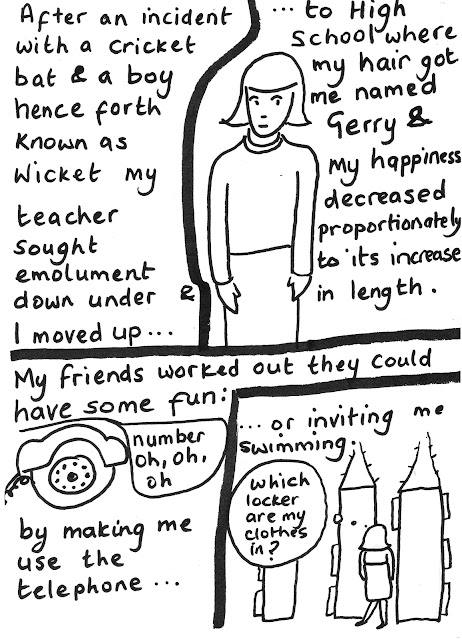 After an incident
with a cricket
bat & a boy
hence forth
known as
Wicket my
teacher
sought
emolument
down under &
I moved up...
... to High
School where
my hair got
me named
Gerry &
My happiness
decreased
proportionately
to its increase
in length.
My friends worked out they could
have some fun:
number
oh, oh,
oh
by making me
use the
telephone ...
... or inviting me
swimming.
which
locker
are my
clothes
in?